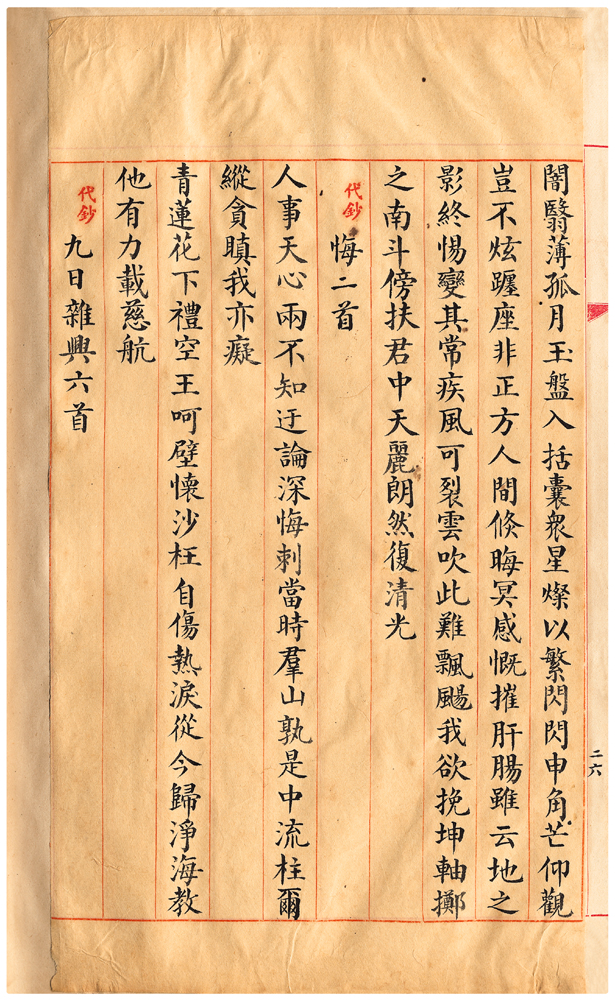 闇翳薄孤月玉盤入括囊衆星燦以繁閃閃申角芒仰觀
豈不炫躔座非正方人間倏晦冥感慨摧肝腸雖云地之
影終惕變其常疾風可裂雲吹此難飄颺我欲挽坤軸擲
之南斗傍扶君中天麗朗然復清光
代鈔
悔二首
人事天心兩不知迂論深悔刺當時羣山孰是中流柱爾
縱貪瞋我亦癡
青蓮花下禮空王呵壁懷沙枉自傷熱淚從今歸淨海教
他有力載慈航
代鈔
九日雜興六首
二六